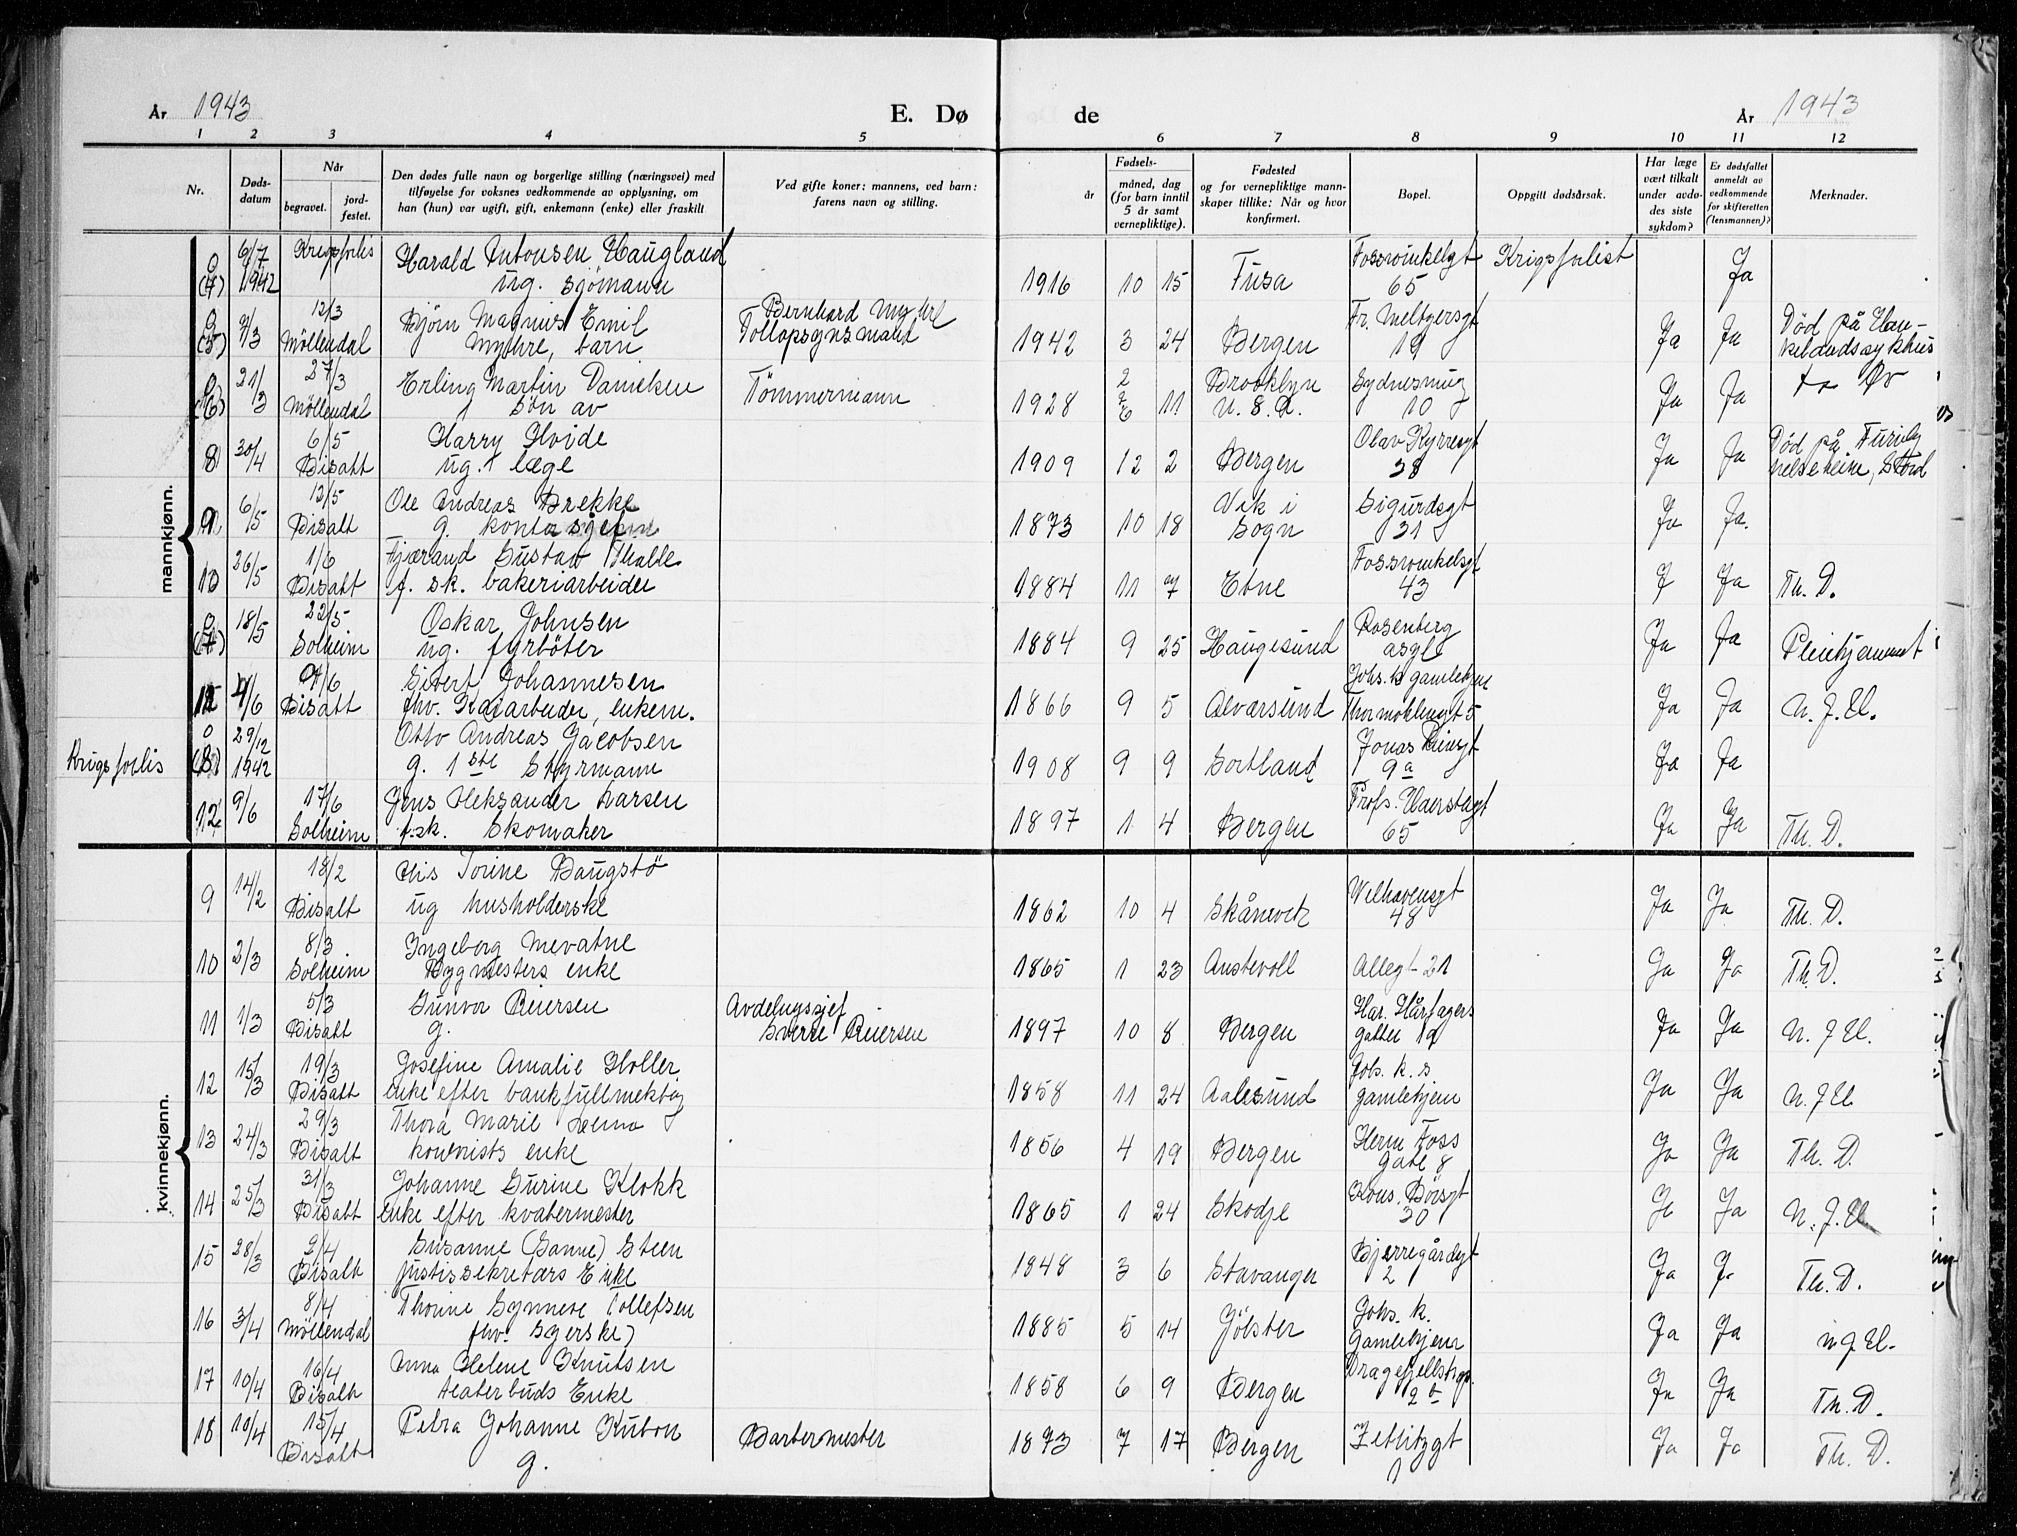 År 1943
E. Dø
de
År 1943
1 2 3 4 5 6 7 8 9 10 11 12
Nr.
Døds-
datum
Når
begravet.
jord-
festet.
Den dødes fulle navn og borgerlige stilling (næringsvei) med
tilføyelse for voksnes vedkommende av opplysning, om
han (hun) var ugift, gift, enkemann (enke) eller fraskilt
Ved gifte koner: mannens, ved barn:
farens navn og stilling.
Fødsels-
år
måned, dag
(for barn inntil
5 år samt
vernepliktige).
Fødested
og for vernepliktige mann-
skaper tillike: Når og hvor
konfirmert.
Bopel.
Oppgitt dødsårsak.
Har læge
vært tilkalt
under avdø-
des siste
sykdom?
Er dødsfallet
anmeldt av
vedkommende
for skifteretten
(lensmannen)?
Merknader.
mannkjønn.
0 6/7 Krigsforlis Harald Antonsen Haugland Fosswinkelsgt Krigsforlist
(4) 1942 ug. sjømann 1916 10 15 Fusa 65 Ja
0 9/3 12/3 Bjørn Magnus Emil Bernhard Myhre Fr. Meltzersgt Død på Hau-
(5) Möllendal Myhre, barn 1942 3 24 Bergen 19 Ja Ja
0 21/3 27/3 Erling Martin Tömmermann Brooklyn Sydnesmug
(6) Möllendal søn av 1928 11 U.S.A. 10 Ja Ja
8 30/4 6/5 Harry Hvide Olav Kyrresgt Død på
Bisatt ug. læge 1909 12 2 Bergen 38 Ja Ja
9 6/5 12/5 Ole Andreas Brekke Vik i Sigurdsgt
Bisatt g. 1873 10 18 Sogn 31 Ja Ja.
10 26/5 1/6 Fjærand Gustav Fosswinkelsgt
Bisatt f. sk. bakeriarbeider 1884 11 7 Etne 43 J Ja Th. D.
0 18/5 22/5 Oskar Johnsen Rosenberg
(7) Solheim ug. fyrbøter 1884 9 25 Haugesund Ja Ja Pleiehjemmet
11 4/6 9/6 Sivert Johannesen Johs. k gamlehjem
Bisatt fhv. Kaiarbeider, enkem. 1866 9 5 Alversund Thormöhlensgt 5 Ja Ja N. J. H.
0 29/12 Otto Andreas Jacobsen Jonas Reinsgt
Krigsforlis (8) 1942 g. 1ste Styrmann 1908 9 9 Sortland 9a Ja Ja
12 9/6 17/6 Jens Aleksander Larsen
Solheim f.sk. Skomaker 1897 1 4 Bergen 65 Ja Ja Th. D.
kvinnekjønn.
9 14/2 18/2 Torine Haugstö Welhavensgt
Bisatt ug husholderske 1862 10 4 Skånevik 48 Ja Ja Th. D.
10 2/3 8/3 Ingeborg Mevatne
Solheim Bygmesters enke 1865 1 23 Austevoll Allegt 21 Ja Ja Th. D.
11 1/3 5/3 Gunvor Reiersen Avdelingssjef Har. Hårfagers
Bisatt g. Sverre Reiersen 1897 10 8 Bergen gate Ja Ja N. J H.
12 15/3 19/3 Josefine Amalie Holler Johs. k. s
Bisatt enke efter bankfullmektig 1858 11 24 Aalesund gamlehjem Ja Ja N. J H
13 24/3 29/3 Thora Marie Herm Foss
Bisatt enke 1856 4 19 Bergen Gate 8 Ja Ja Th. D.
14 25/3 31/3 Johanne Gurine Klokk Kons. Börsgt
Bisatt enke efter kvatermester 1865 1 24 Skodje 30 Ja Ja N. J. H.
15 28/3 2/4 Susanne (Sanne) Steen Bjerregårdsgt
Bisatt Justissekretærs Enke 1848 3 6 Stavanger 2 Ja J. Th. D.
16 3/4 8/4 Thorine Synneve Tollefsen Johs. k.
Möllendal fhv. Syerske) 1885 5 14 Jölster Gamlehjem Ja Ja N J H.
17 10/4 16/4 Anna Helene Knutsen
Bisatt teaterbuds Enke 1858 6 9 Bergen Ja Ja Th. D.
18 10/4 15/4 Petra Johanne Kubon Barbermester 1873 7 17 Bergen Zetlitzgt Ja Ja Th. D.
Bisatt g. 1